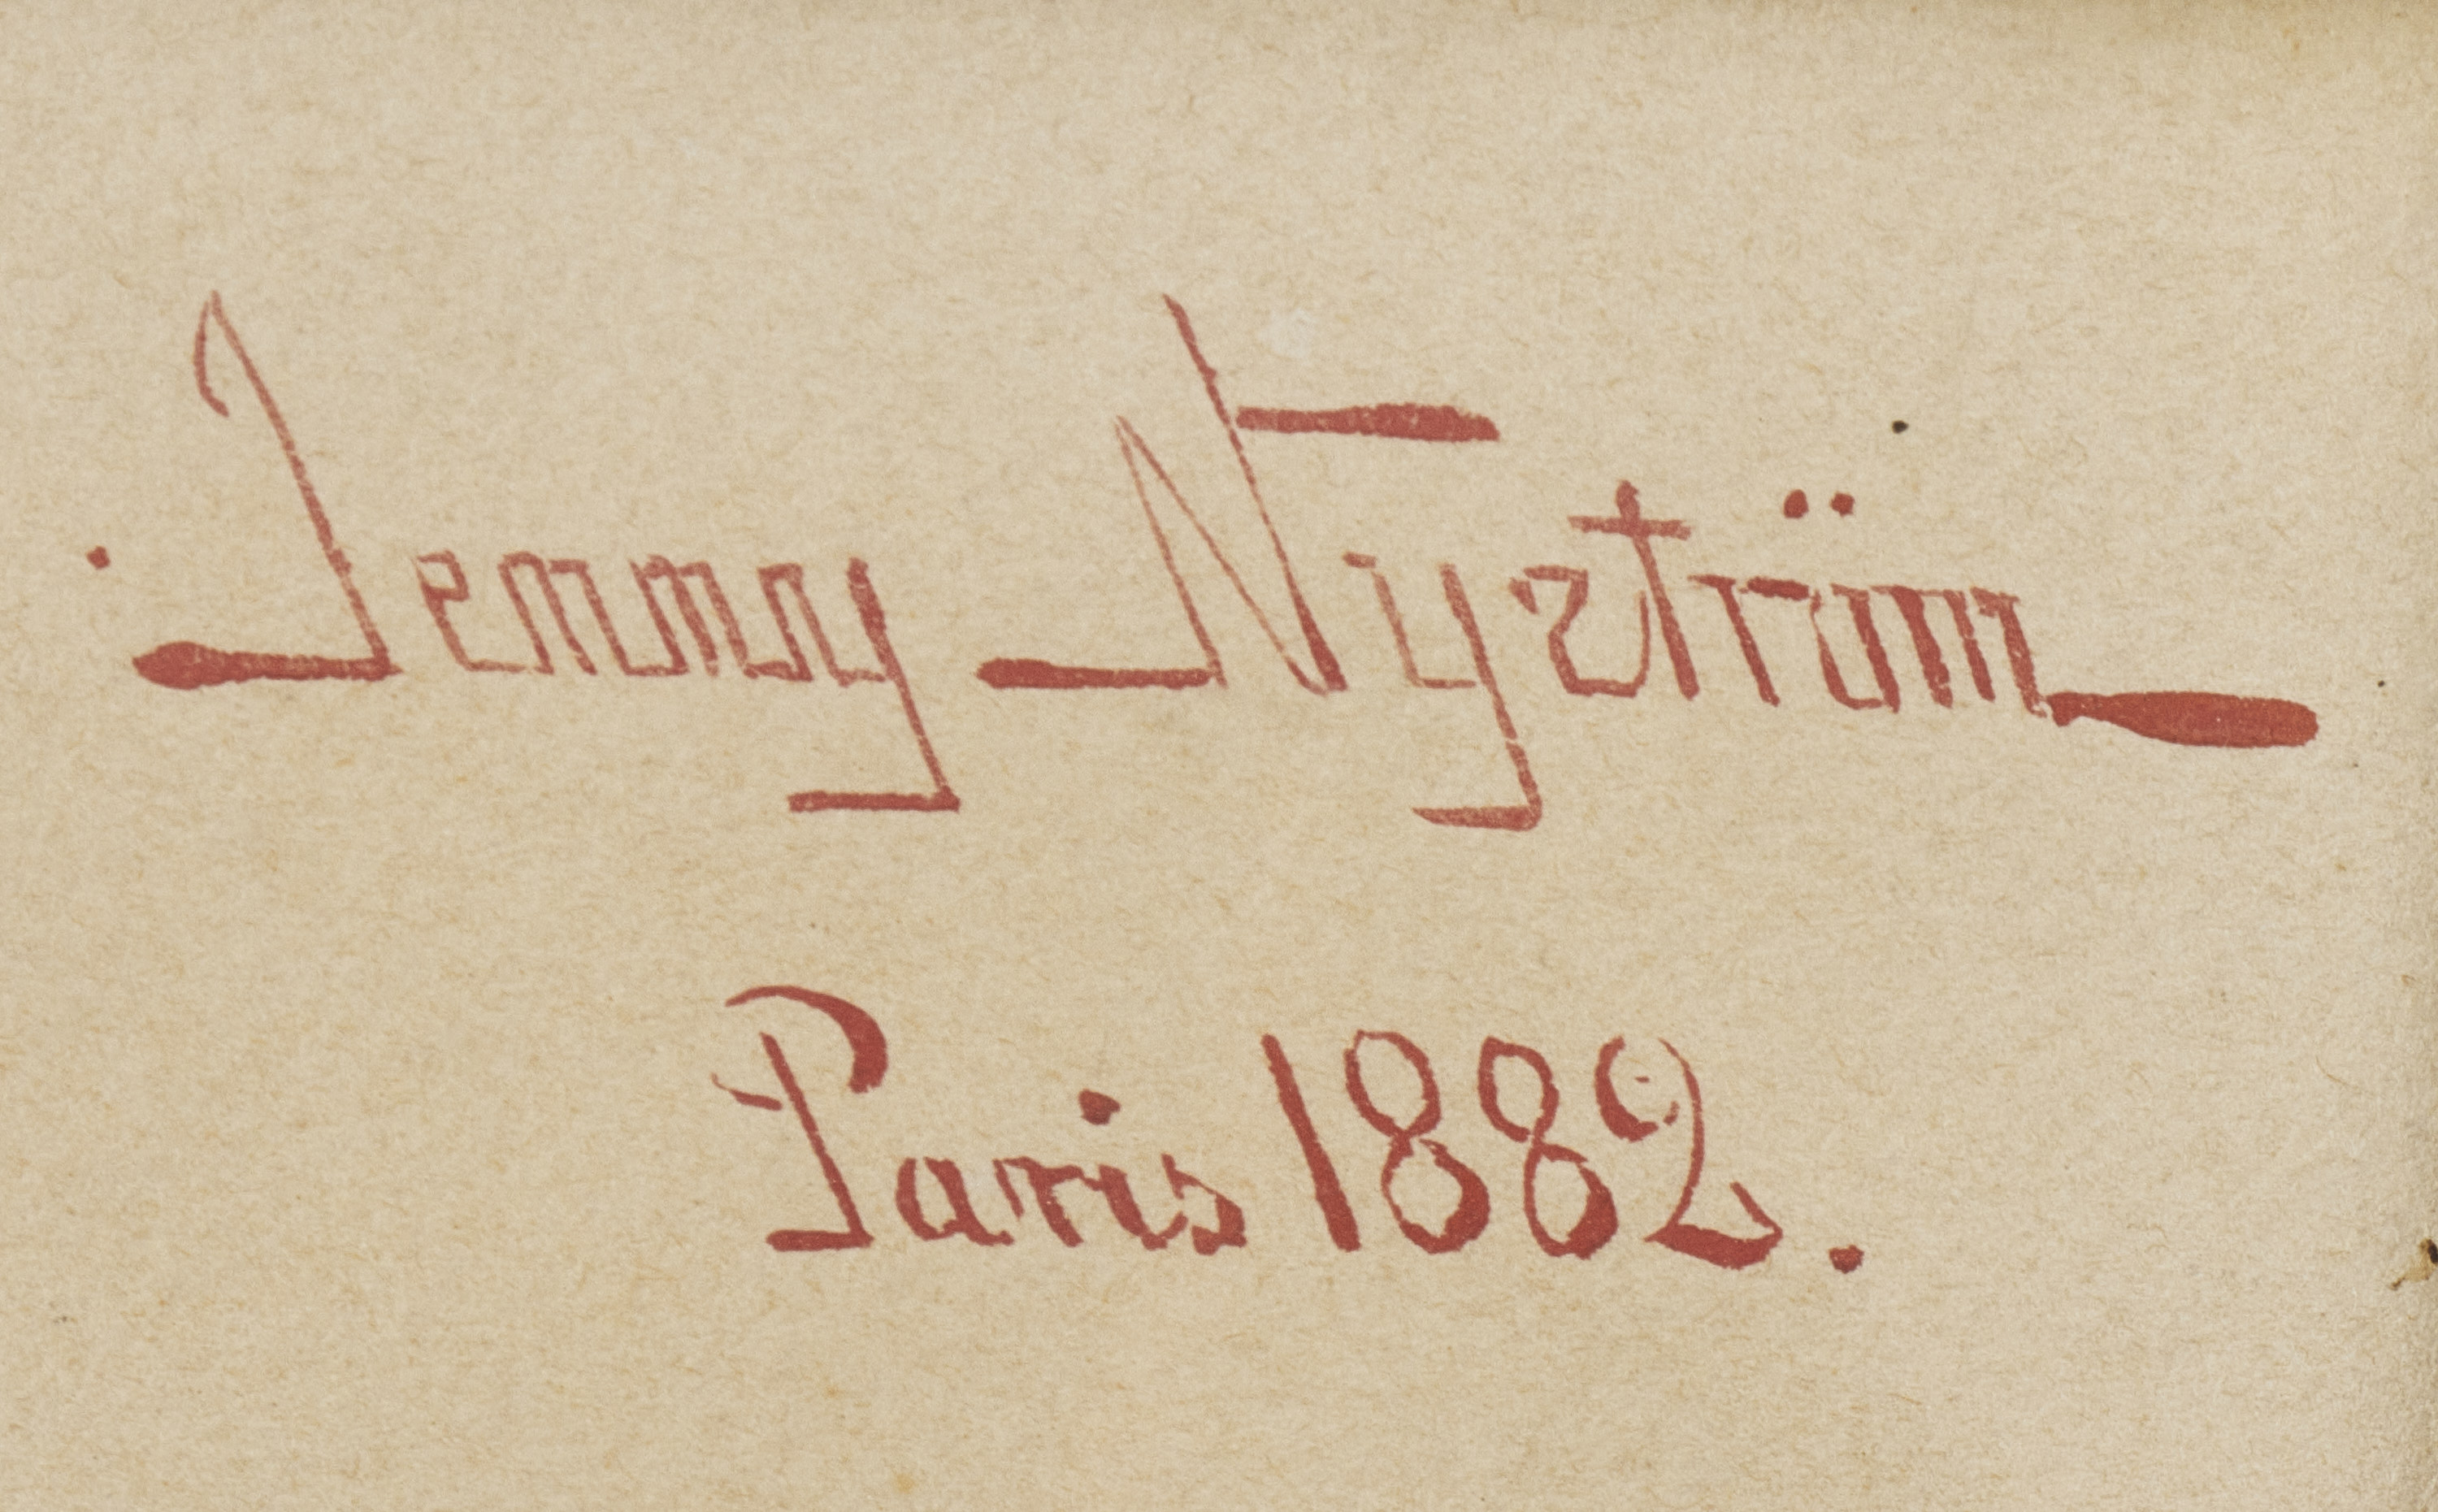 Jenny Nyström
Paris 1882.